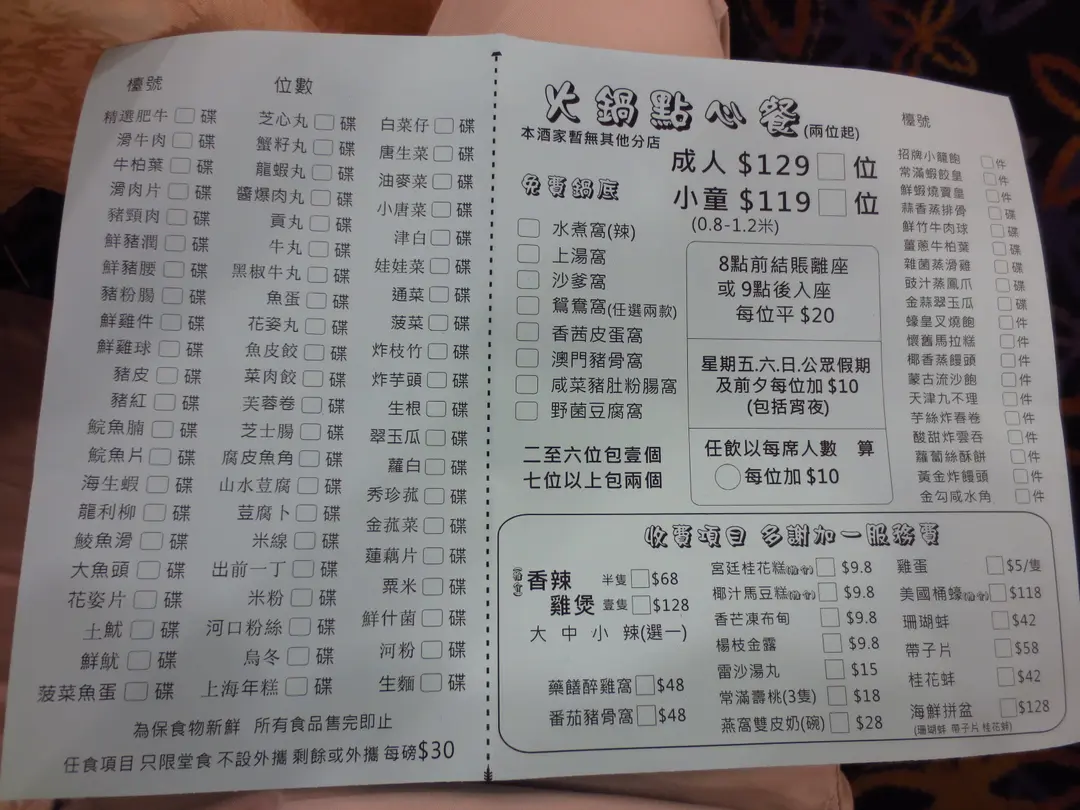 檯號 位數
精選肥牛 碟
滑牛肉 碟
牛柏葉 碟
滑肉片 碟
豬頸肉 碟
鮮豬潤 碟
鮮豬腰 碟
豬粉腸 碟
鮮雞件 碟
鮮雞球 碟
豬皮 碟
豬紅 碟
鯇魚腩 碟
鯇魚片 碟
海生蝦 碟
龍利柳 碟
鯪魚滑 碟
大魚頭 碟
花姿片 碟
土魷 碟
鮮魷 碟
菠菜魚蛋 碟
芝心丸 碟
蟹籽丸 碟
龍蝦丸 碟
醬爆肉丸 碟
貢丸 碟
牛丸 碟
黑椒牛丸 碟
魚蛋 碟
花姿丸 碟
魚皮餃 碟
菜肉餃 碟
芙蓉卷 碟
芝士腸 碟
腐皮魚角 碟
山水荳腐 碟
荳腐卜 碟
米線 碟
出前一丁 碟
米粉 碟
河口粉絲 碟
烏冬 碟
上海年糕 碟
白菜仔 碟
唐生菜 碟
油麥菜 碟
小唐菜 碟
津白 碟
娃娃菜 碟
通菜 碟
菠菜 碟
炸枝竹 碟
炸芋頭 碟
生根 碟
翠玉瓜 碟
蘿白 碟
秀珍菰 碟
金菰菜 碟
蓮藕片 碟
粟米 碟
鮮什菌 碟
河粉 碟
生麵 碟
為保食物新鮮 所有食品售完即止
任食項目 只限堂食 不設外攜 剩餘或外攜 每磅$30
火鍋點心餐(兩位起)
本酒家暫無其他分店
成人 $129 位
小童 $119 位
(0.8-1.2米)
免費鍋底
水煮窩(辣)
上湯窩
沙爹窩
鴛鴦窩(任選兩款)
香茜皮蛋窩
澳門豬骨窩
咸菜豬肚粉腸窩
野菌豆腐窩
二至六位包壹個
七位以上包兩個
8點前結賬離座
或 9點後入座
每位平 $20
星期五.六.日.公眾假期
及前夕每位加 $10
(包括宵夜)
任飲以每席人數 算
每位加 $10
檯號
招牌小籠飽 件
常滿蝦餃皇 件
鮮蝦燒賣皇 件
蒜香蒸排骨 碟
鮮竹牛肉球 碟
薑蔥牛柏葉 碟
雜菌蒸滑雞 碟
豉汁蒸鳳爪 碟
金蒜翠玉瓜 碟
蠔皇叉燒飽 件
懷舊馬拉糕 件
椰香蒸饅頭 件
蒙古流沙飽 件
天津九不理 件
芋絲炸春卷 件
酸甜炸雲吞 件
蘿蔔絲酥餅 件
黃金炸饅頭 件
金勾咸水角 件
收費項目 多謝加一服務費
香辣
雞煲
半隻 $68
壹隻 $128
大 中 小 辣(選一)
藥饍醉雞窩 $48
番茄豬骨窩 $48
宮廷桂花糕 $9.8
椰汁馬豆糕 $9.8
香芒凍布甸 $9.8
楊枝金露 $9.8
雷沙湯丸 $15
常滿壽桃(3隻) $18
燕窩雙皮奶(碗) $28
雞蛋 $5/隻
美國桶蠔 $118
珊瑚蚌 $42
帶子片 $58
桂花蚌 $42
海鮮拼盆 $128
(珊瑚蚌 帶子片 桂花蚌)